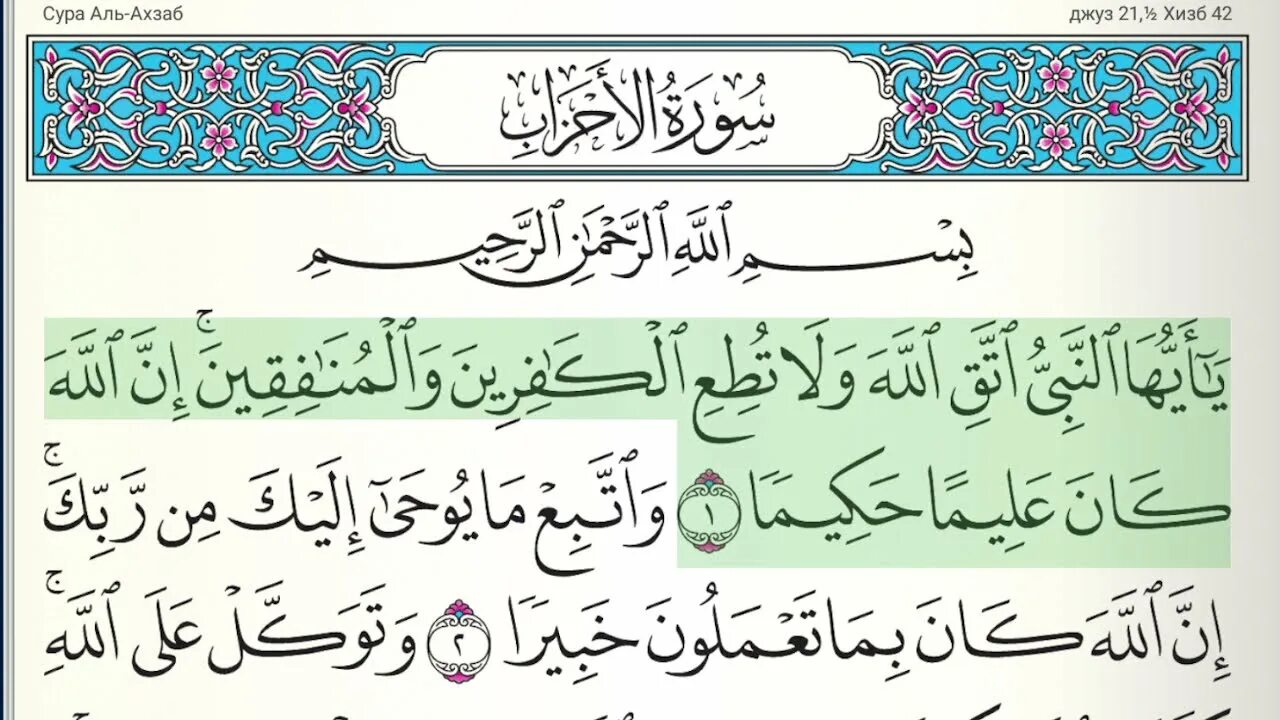 Сура Аль-Ахзаб
джуз 21,½ Хизб 42
سُورَةُ الأَحْزَابِ
بِسْمِ ٱللَّهِ ٱلرَّحْمَٰنِ ٱلرَّحِيمِ
يَٰٓأَيُّهَا ٱلنَّبِىُّ ٱتَّقِ ٱللَّهَ وَلَا تُطِعِ ٱلْكَٰفِرِينَ وَٱلْمُنَٰفِقِينَ ۚ إِنَّ ٱللَّهَ
كَانَ عَلِيمًا حَكِيمًا ١ وَٱتَّبِعْ مَا يُوحَىٰٓ إِلَيْكَ مِن رَّبِّكَ ۚ
إِنَّ ٱللَّهَ كَانَ بِمَا تَعْمَلُونَ خَبِيرًا ٢ وَتَوَكَّلْ عَلَى ٱللَّهِ ۚ